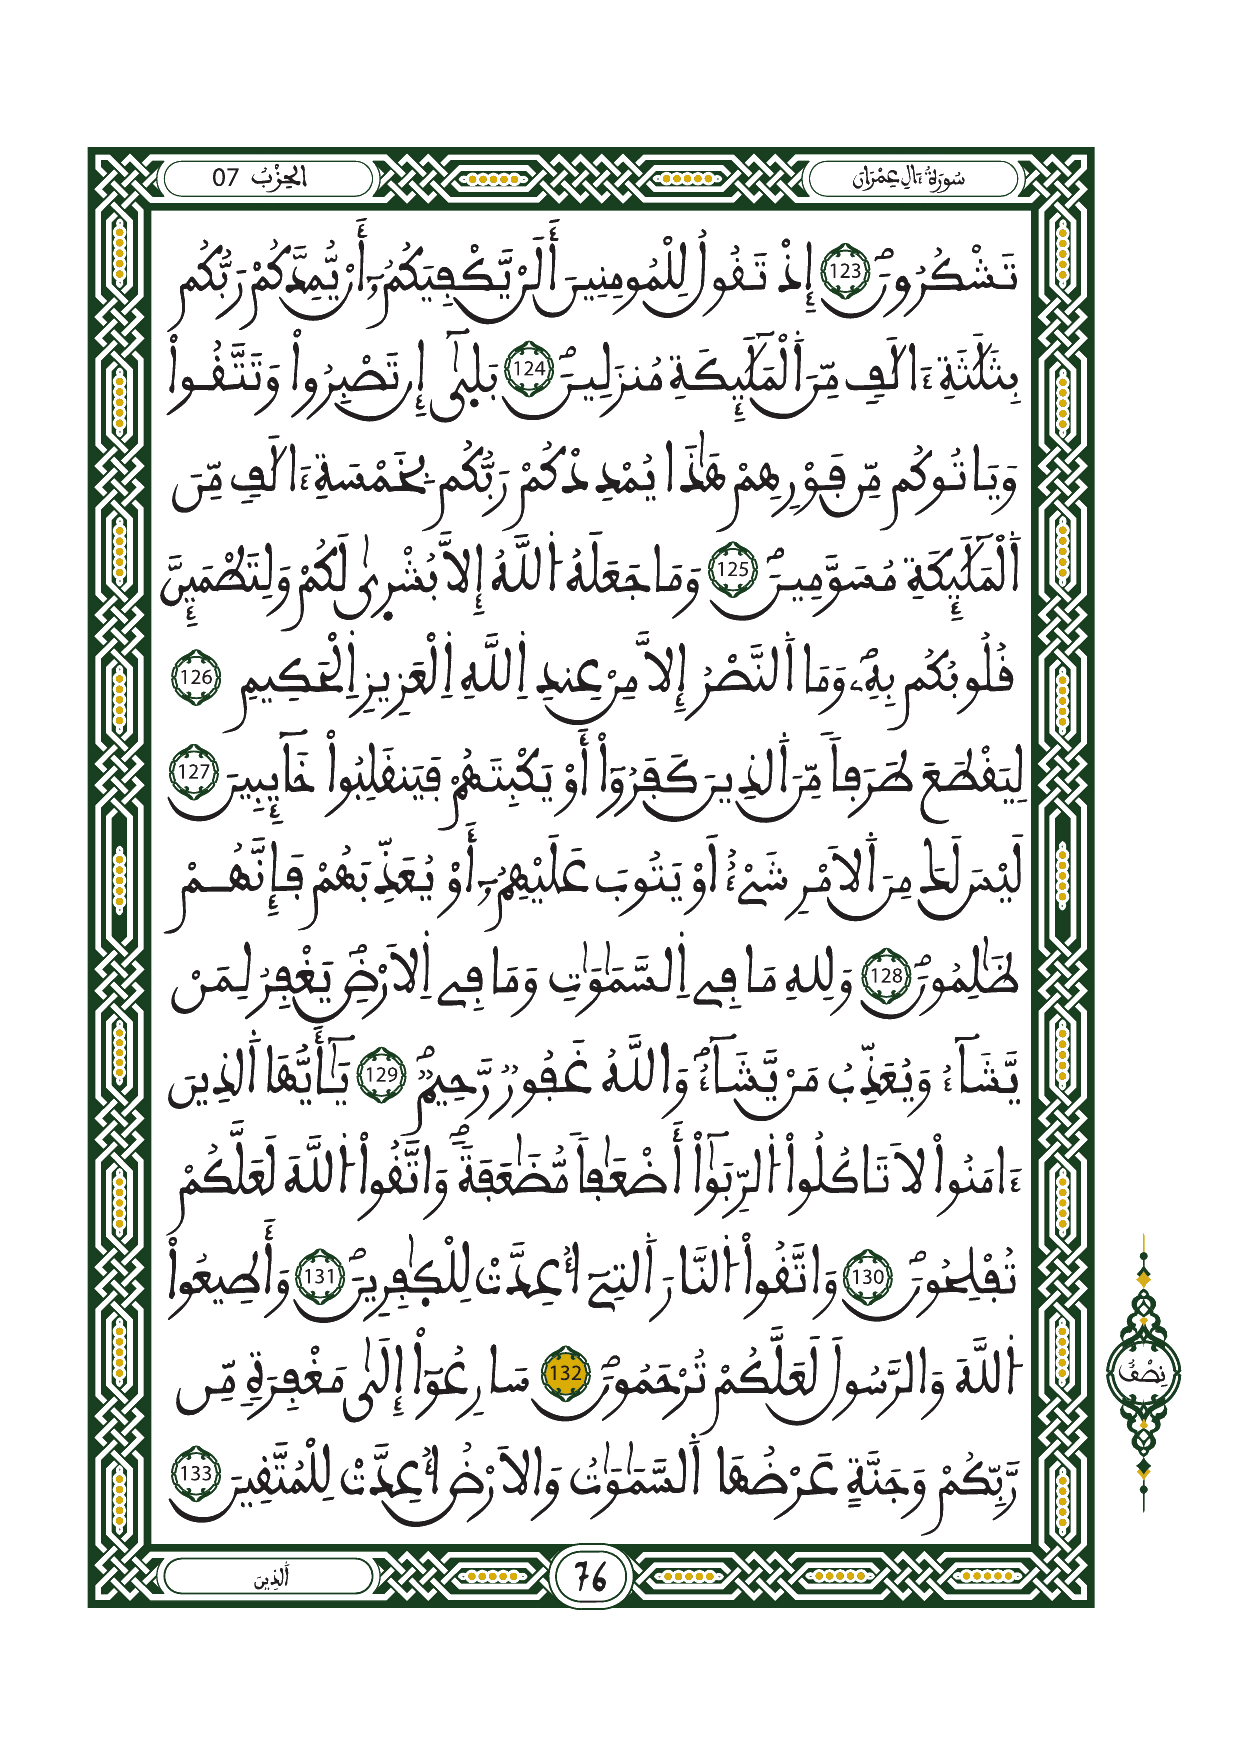 سُورَةُ ءَالِ عِمْرَانَ
الْحِزْبُ 07
تَشْكُرُونَۖ 123 إِذْ تَقُولُ لِلْمُومِنِينَ أَلَنْ يَّكْفِيَكُمُۥٓ أَنْ يُّمِدَّكُمْ رَبُّكُم
بِثَلَٰثَةِ ءَالَٰفٖ مِّنَ اَ۬لْمَلَٰٓئِكَةِ مُنزَلِينَۖ 124 بَل۪يٰٓ إِن تَصْبِرُواْ وَتَتَّقُواْ
وَيَاتُوكُم مِّن فَوْرِهِمْ هَٰذَا يُمْدِدْكُمْ رَبُّكُم بِخَمْسَةِ ءَالَٰفٖ مِّنَ
اَ۬لْمَلَٰٓئِكَةِ مُسَوَّمِينَۖ 125 وَمَا جَعَلَهُ اُ۬للَّهُ إِلَّا بُشْر۪يٰ لَكُمْ وَلِتَطْمَئِنَّ
قُلُوبُكُم بِهِۦۖ وَمَا اَ۬لنَّصْرُ إِلَّا مِنْ عِندِ اِ۬للَّهِ اِ۬لْعَزِيزِ اِ۬لْحَكِيمِ 126
لِيَقْطَعَ طَرَفاٗ مِّنَ اَ۬لذِينَ كَفَرُوٓاْ أَوْ يَكْبِتَهُمْ فَيَنقَلِبُواْ خَآئِبِينَ 127
لَيْسَ لَكَ مِنَ اَ۬لَامْرِ شَےْءٌ اَوْ يَتُوبَ عَلَيْهِمُۥٓ أَوْ يُعَذِّبَهُمْ فَإِنَّهُمْ
ظَٰلِمُونَۖ 128 وَلِلهِ مَا فِے اِ۬لسَّمَٰوَٰتِ وَمَا فِے اِ۬لَارْضِۖ يَغْفِرُ لِمَنْ
يَّشَآءُ وَيُعَذِّبُ مَنْ يَّشَآءُۖ وَاللَّهُ غَفُورٞ رَّحِيمٞۖ 129 يَٰٓأَيُّهَا اَ۬لذِينَ
ءَامَنُواْ لَا تَاكُلُواْ اُ۬لرِّبَوٰٓاْ أَضْعَٰفاٗ مُّضَٰعَفَةٗۖ وَاتَّقُواْ اُ۬للَّهَ لَعَلَّكُمْ
تُفْلِحُونَۖ 130 وَاتَّقُواْ اُ۬لنَّارَ اَ۬لتِےٓ أُعِدَّتْ لِلْكٰ۪فِرِينَۖ 131 وَأَطِيعُواْ
اُ۬للَّهَ وَالرَّسُولَ لَعَلَّكُمْ تُرْحَمُونَۖ 132 سَارِعُوٓاْ إِلَىٰ مَغْفِرَةٖ مِّن
رَّبِّكُمْ وَجَنَّةٍ عَرْضُهَا اَ۬لسَّمَٰوَٰتُ وَالَارْضُ أُعِدَّتْ لِلْمُتَّقِينَ 133
نِصْفُ
76
اَ۬لذِينَ